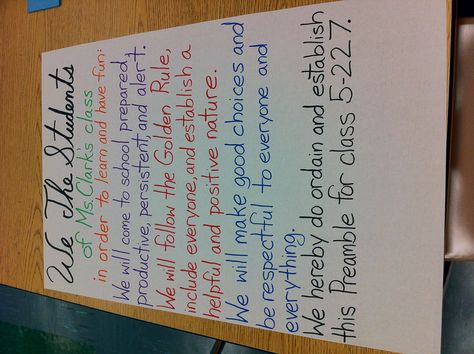 We The Students
of Ms. Clark's class
in order to learn and have fun:
We will come to school, prepared,
productive, persistent, and alert.
We will follow the Golden Rule,
include everyone, and establish a
helpful and positive nature.
We will make good choices and
be respectful to everyone and
everything.
We hereby do ordain and establish
this Preamble for class 5-227.